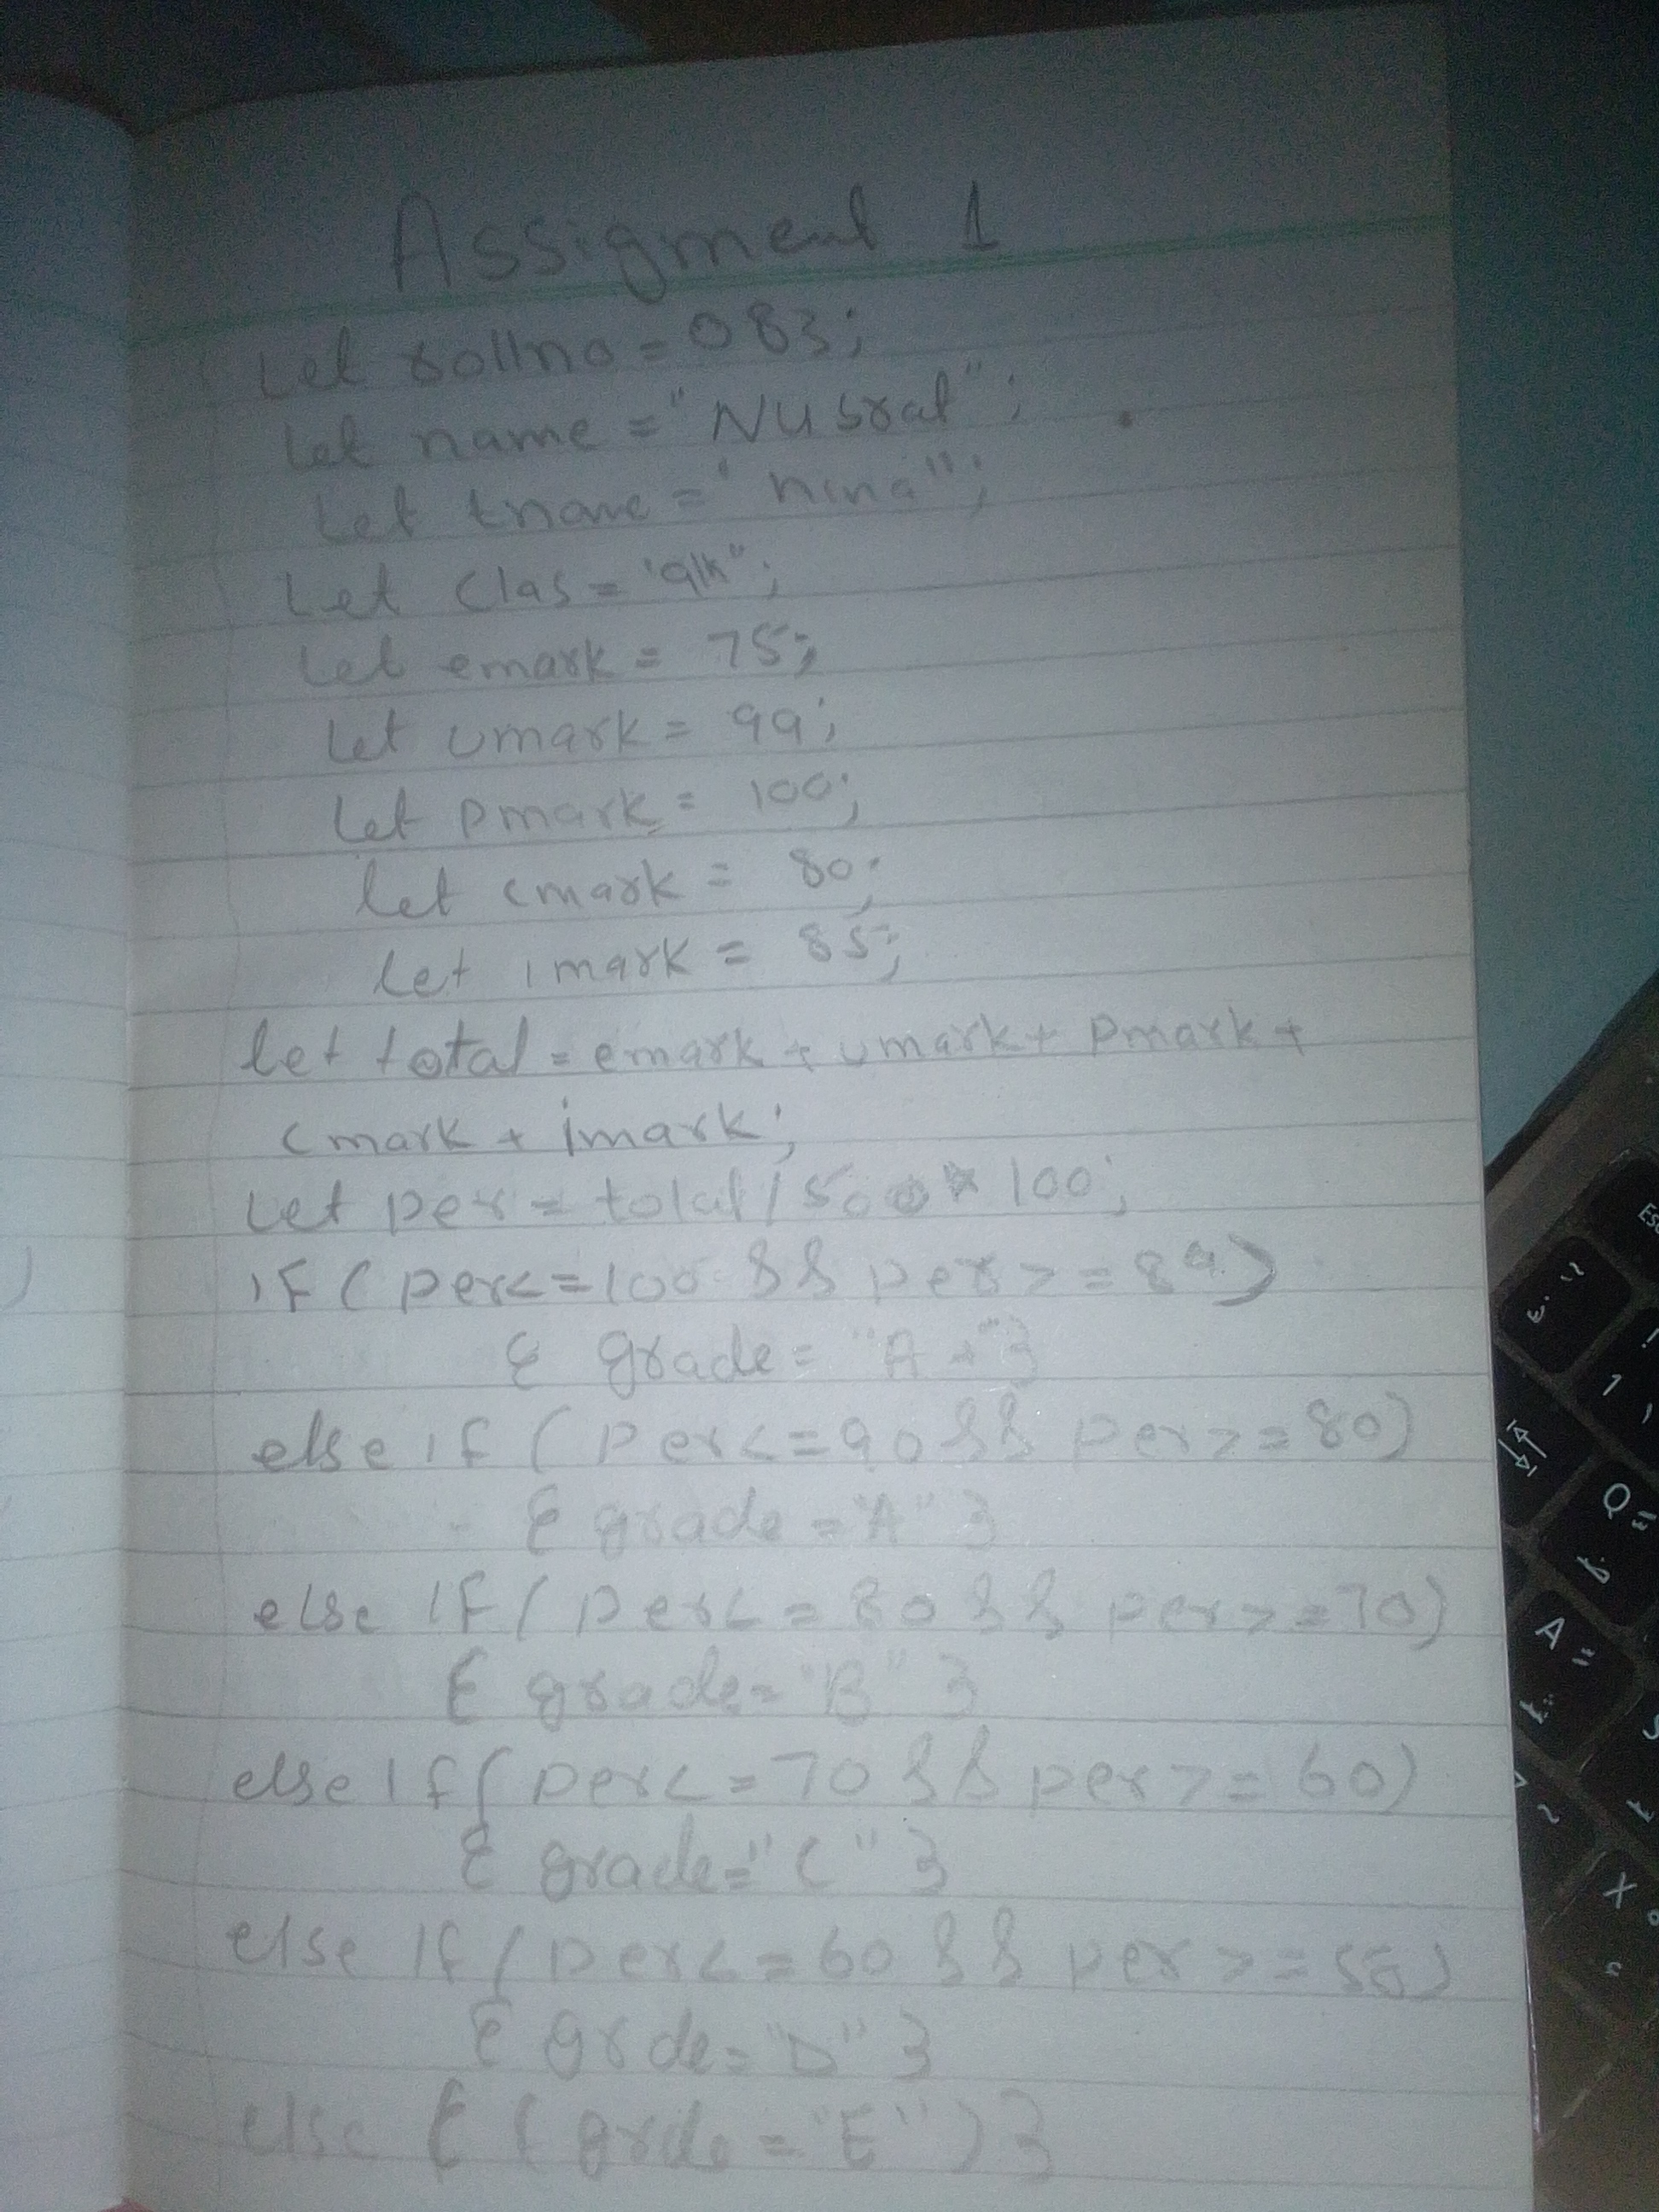 Assigment 1
Let rollno = 083;
Let name = "Nusrat";
Let tname = "hina";
Let clas = "9th";
Let emark = 75;
Let umark = 99;
Let pmark = 100;
let cmark = 80;
let imark = 85;
let total = emark + umark + pmark +
cmark + imark;
Let per = total / 500 * 100;
IF ( per <= 100 && per >= 89 )
{ grade = "A+" }
else if ( per <= 90 && per >= 80 )
{ grade = "A" }
else IF ( per <= 80 && per >= 70 )
{ grade = "B" }
else If ( per <= 70 && per >= 60 )
{ grade = "C" }
else If ( per <= 60 && per >= 50 )
{ grde = "D" }
else { ( grde = "E" ) }
Esc
1
Q
A
X